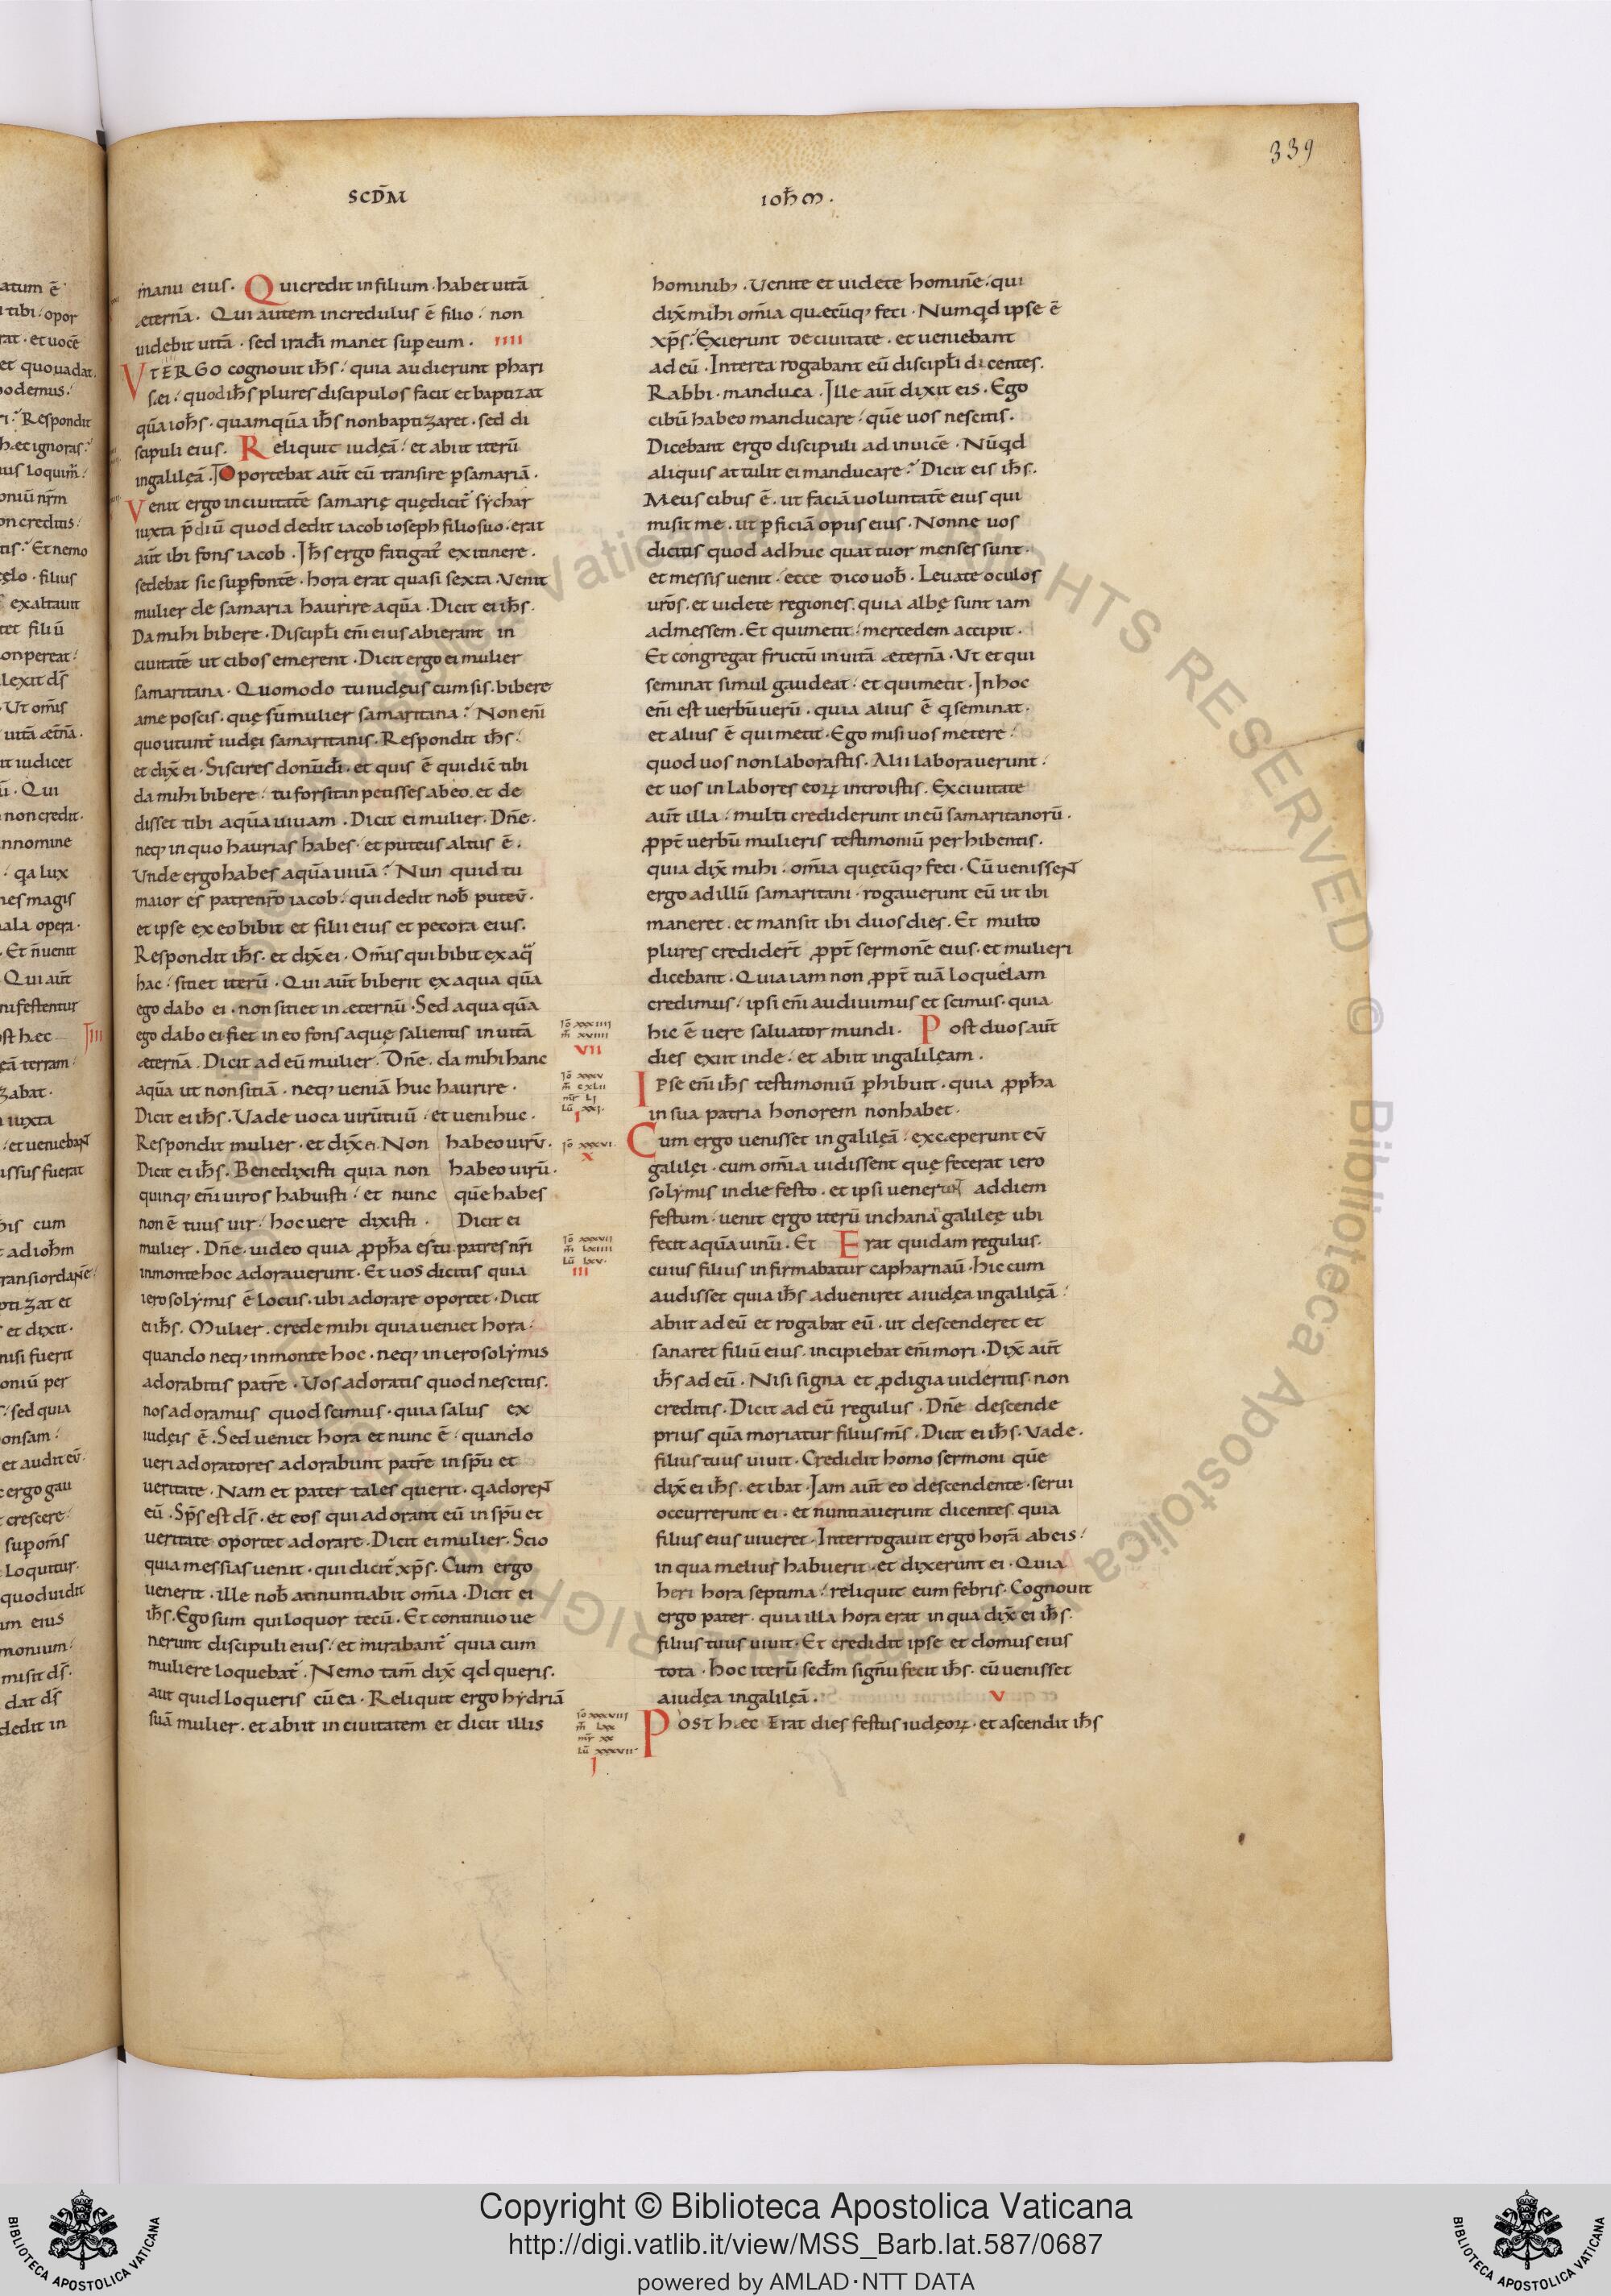 339
SCD̄M
IOH̄M·
manu eius· Qui credit in filium· habet uitā
æternā· Qui autem incredulus ē filio· non
uidebit uitā· sed ira dī manet super eum· IIII
VT ERGO cognouit ih̄s· quia audierunt phari
sęi· quod ih̄s plures discipulos facit et baptizat
quā ioh̄s· quamquā ih̄s non baptizaret· sed di
scipuli eius· Reliquit iudęā· et abiit iterū
in galilęā· Oportebat aūt eū transire p samariā·
Venit ergo in ciuitatē samarię quę dicit̄ sychar
iuxta p̄diū quod dedit iacob ioseph filio suo· erat
aūt ibi fons iacob· Ih̄s ergo fatigat̄ ex itinere·
sedebat sic sup fontē· hora erat quasi sexta· Venit
mulier de samaria haurire aquā· Dicit ei ih̄s·
Da mihi bibere· Discipłi eīn eius abierant in
ciuitatē ut cibos emerent· Dicit ergo ei mulier
samaritana· Quomodo tu iudęus cum sis· bibere
a me poscis· quę sū mulier samaritana? Non eīn
quoutunt̄ iudęi samaritanis· Respondit ih̄s·
et dix̄ ei· Si scires donū dī· et quis ē qui dic̄ tibi
da mihi bibere· tu forsitan petisses ab eo· et de
disset tibi aquā uiuam· Dicit ei mulier· Dn̄e·
neq; in quo haurias habes· et puteus altus ē·
Unde ergo habes aquā uiuā? Nunquid tu
maior es patre nr̄o iacob· qui dedit nob̄ puteū·
et ipse ex eo bibit et filii eius et pecora eius·
Respondit ih̄s· et dix̄ ei· Om̄is qui bibit ex aq̄
hac· sitiet iterū· Qui aūt biberit ex aqua quā
ego dabo ei· non sitiet in æternū· Sed aqua quā
ego dabo ei fiet in eo fons aquę salientis in uitā
æternā· Dicit ad eū mulier· Dn̄e· da mihi hanc
aquā ut non sitiā· neq; ueniā huc haurire·
Dicit ei ih̄s· Vade uoca uirū tuū· et ueni huc·
Respondit mulier· et dix̄ ei· Non habeo uirū·
Dicit ei ih̄s· Benedixisti quia non habeo uirū·
quinq; eīn uiros habuisti· et nunc quē habes
non ē tuus uir· hoc uere dixisti· Dicit ei
mulier· Dn̄e· uideo quia ꝓph̄a es tu· patres nr̄i
in monte hoc adorauerunt· Et uos dicitis quia
ierosolymis ē locus· ubi adorare oportet· Dicit
ei ih̄s· Mulier· crede mihi quia ueniet hora·
quando neq; in monte hoc· neq; in ierosolymis
adorabitis patrē· Vos adoratis quod nescitis·
nos adoramus quod scimus· quia salus ex
iudęis ē· Sed ueniet hora et nunc ē· quando
ueri adoratores adorabunt patrē in sp̄u et
ueritate· Nam et pater tales querit· q adorent
eū· Sp̄s est ds̄· et eos qui adorant eū in sp̄u et
ueritate oportet adorare· Dicit ei mulier· Scio
quia messias uenit· qui dicit̄ xp̄s· Cum ergo
uenerit· ille nob̄ annuntiabit om̄ia· Dicit ei
ih̄s· Ego sum qui loquor tecū· Et continuo ue
nerunt discipuli eius· et mirabant̄ quia cum
muliere loquebat̄· Nemo tam̄ dix̄ qd queris·
aut quid loqueris cū ea· Reliquit ergo hydriā
suā mulier· et abiit in ciuitatem et dicit illis
Iō XXXIIII
m̄ XVIIII
VII
Iō XXXV
m̄ CXLII
mr̄ LI
Lū XXI·
I
Iō XXXVI·
X
Iō XXXVII
m̄ LXIIII
Lū LXV·
III
Iō XXXVIII
m̄ LXX
mr̄ XX
Lū XXXVII·
I
hominib;· Venite et uidete hominē· qui
dix̄ mihi om̄ia quæcūq; feci· Numqd ipse ē
xp̄s? Exierunt de ciuitate· et ueniebant
ad eū· Interea rogabant eū discipłi dicentes·
Rabbi· manduca· Ille aūt dixit eis· Ego
cibū habeo manducare· quē uos nescitis·
Dicebant ergo discipuli ad inuicē· Nūqd
aliquis attulit ei manducare? Dicit eis ih̄s·
Meus cibus ē· ut faciā uoluntatē eius qui
misit me· ut pficiā opus eius· Nonne uos
dicitis quod adhuc quattuor menses sunt·
et messis uenit· ecce dico uob̄· Leuate oculos
ur̄os· et uidete regiones· quia albę sunt iam
ad messem· Et qui metit· mercedem accipit·
Et congregat fructū in uitā æternā· Vt et qui
seminat simul gaudeat· et qui metit· In hoc
eīn est uerbū uerū· quia alius ē q seminat·
et alius ē qui metit· Ego misi uos metere·
quod uos non laborastis· Alii laborauerunt·
et uos in labores eoꝝ introistis· Ex ciuitate
aūt illa· multi crediderunt in eū samaritanorū·
ꝓpt̄ uerbū mulieris testimoniū perhibentis·
quia dix̄ mihi· om̄ia quęcūq; feci· Cū uenissent
ergo ad illū samaritani· rogauerunt eū ut ibi
maneret· et mansit ibi duos dies· Et multo
plures credider̄t ꝓpt̄ sermonē eius· et mulieri
dicebant· Quia iam non ꝓpt̄ tuā loquelam
credimus· ipsi eīn audiuimus et scimus· quia
hic ē uere saluator mundi· Post duos aūt
dies exiit inde· et abiit in galilęam·
Ipse eīn ih̄s testimoniū phibuit· quia ꝓph̄a
in sua patria honorem non habet·
Cum ergo uenisset in galilęā· exceperunt eū
galilęi· cum om̄ia uidissent quę fecerat iero
solymis in die festo· et ipsi uenerunt ad diem
festum· uenit ergo iterū in chana galilęę ubi
fecit aquā uinū· Et Erat quidam regulus·
cuius filius infirmabatur capharnaū· hic cum
audisset quia ih̄s adueniret a iudęa in galilęā·
abiit ad eū et rogabat eū· ut descenderet et
sanaret filiū eius· incipiebat eīn mori· Dix̄ aūt
ih̄s ad eū· Nisi signa et ꝓdigia uideritis· non
creditis· Dicit ad eū regulus· Dn̄e descende
prius quā moriatur filius m̄s· Dicit ei ih̄s· Vade·
filius tuus uiuit· Credidit homo sermoni quē
dix̄ ei ih̄s· et ibat· Iam aūt eo descendente· serui
occurrerunt ei· et nuntiauerunt dicentes· quia
filius eius uiueret· Interrogauit ergo horā ab eis·
in qua melius habuerit· et dixerunt ei· Quia
heri hora septima· reliquit eum febris· Cognouit
ergo pater· quia illa hora erat in qua dix̄ ei ih̄s·
filius tuus uiuit· Et credidit ipse et domus eius
tota· hoc iterū scd̄m signū fecit ih̄s· cū uenisset
a iudęa in galilęā· V
Post hæc Erat dies festus iudęoꝝ· et ascendit ih̄s
Copyright © Biblioteca Apostolica Vaticana
http://digi.vatlib.it/view/MSS_Barb.lat.587/0687
powered by AMLAD·NTT DATA
BIBLIOTECA APOSTOLICA VATICANA
BIBLIOTECA APOSTOLICA VATICANA